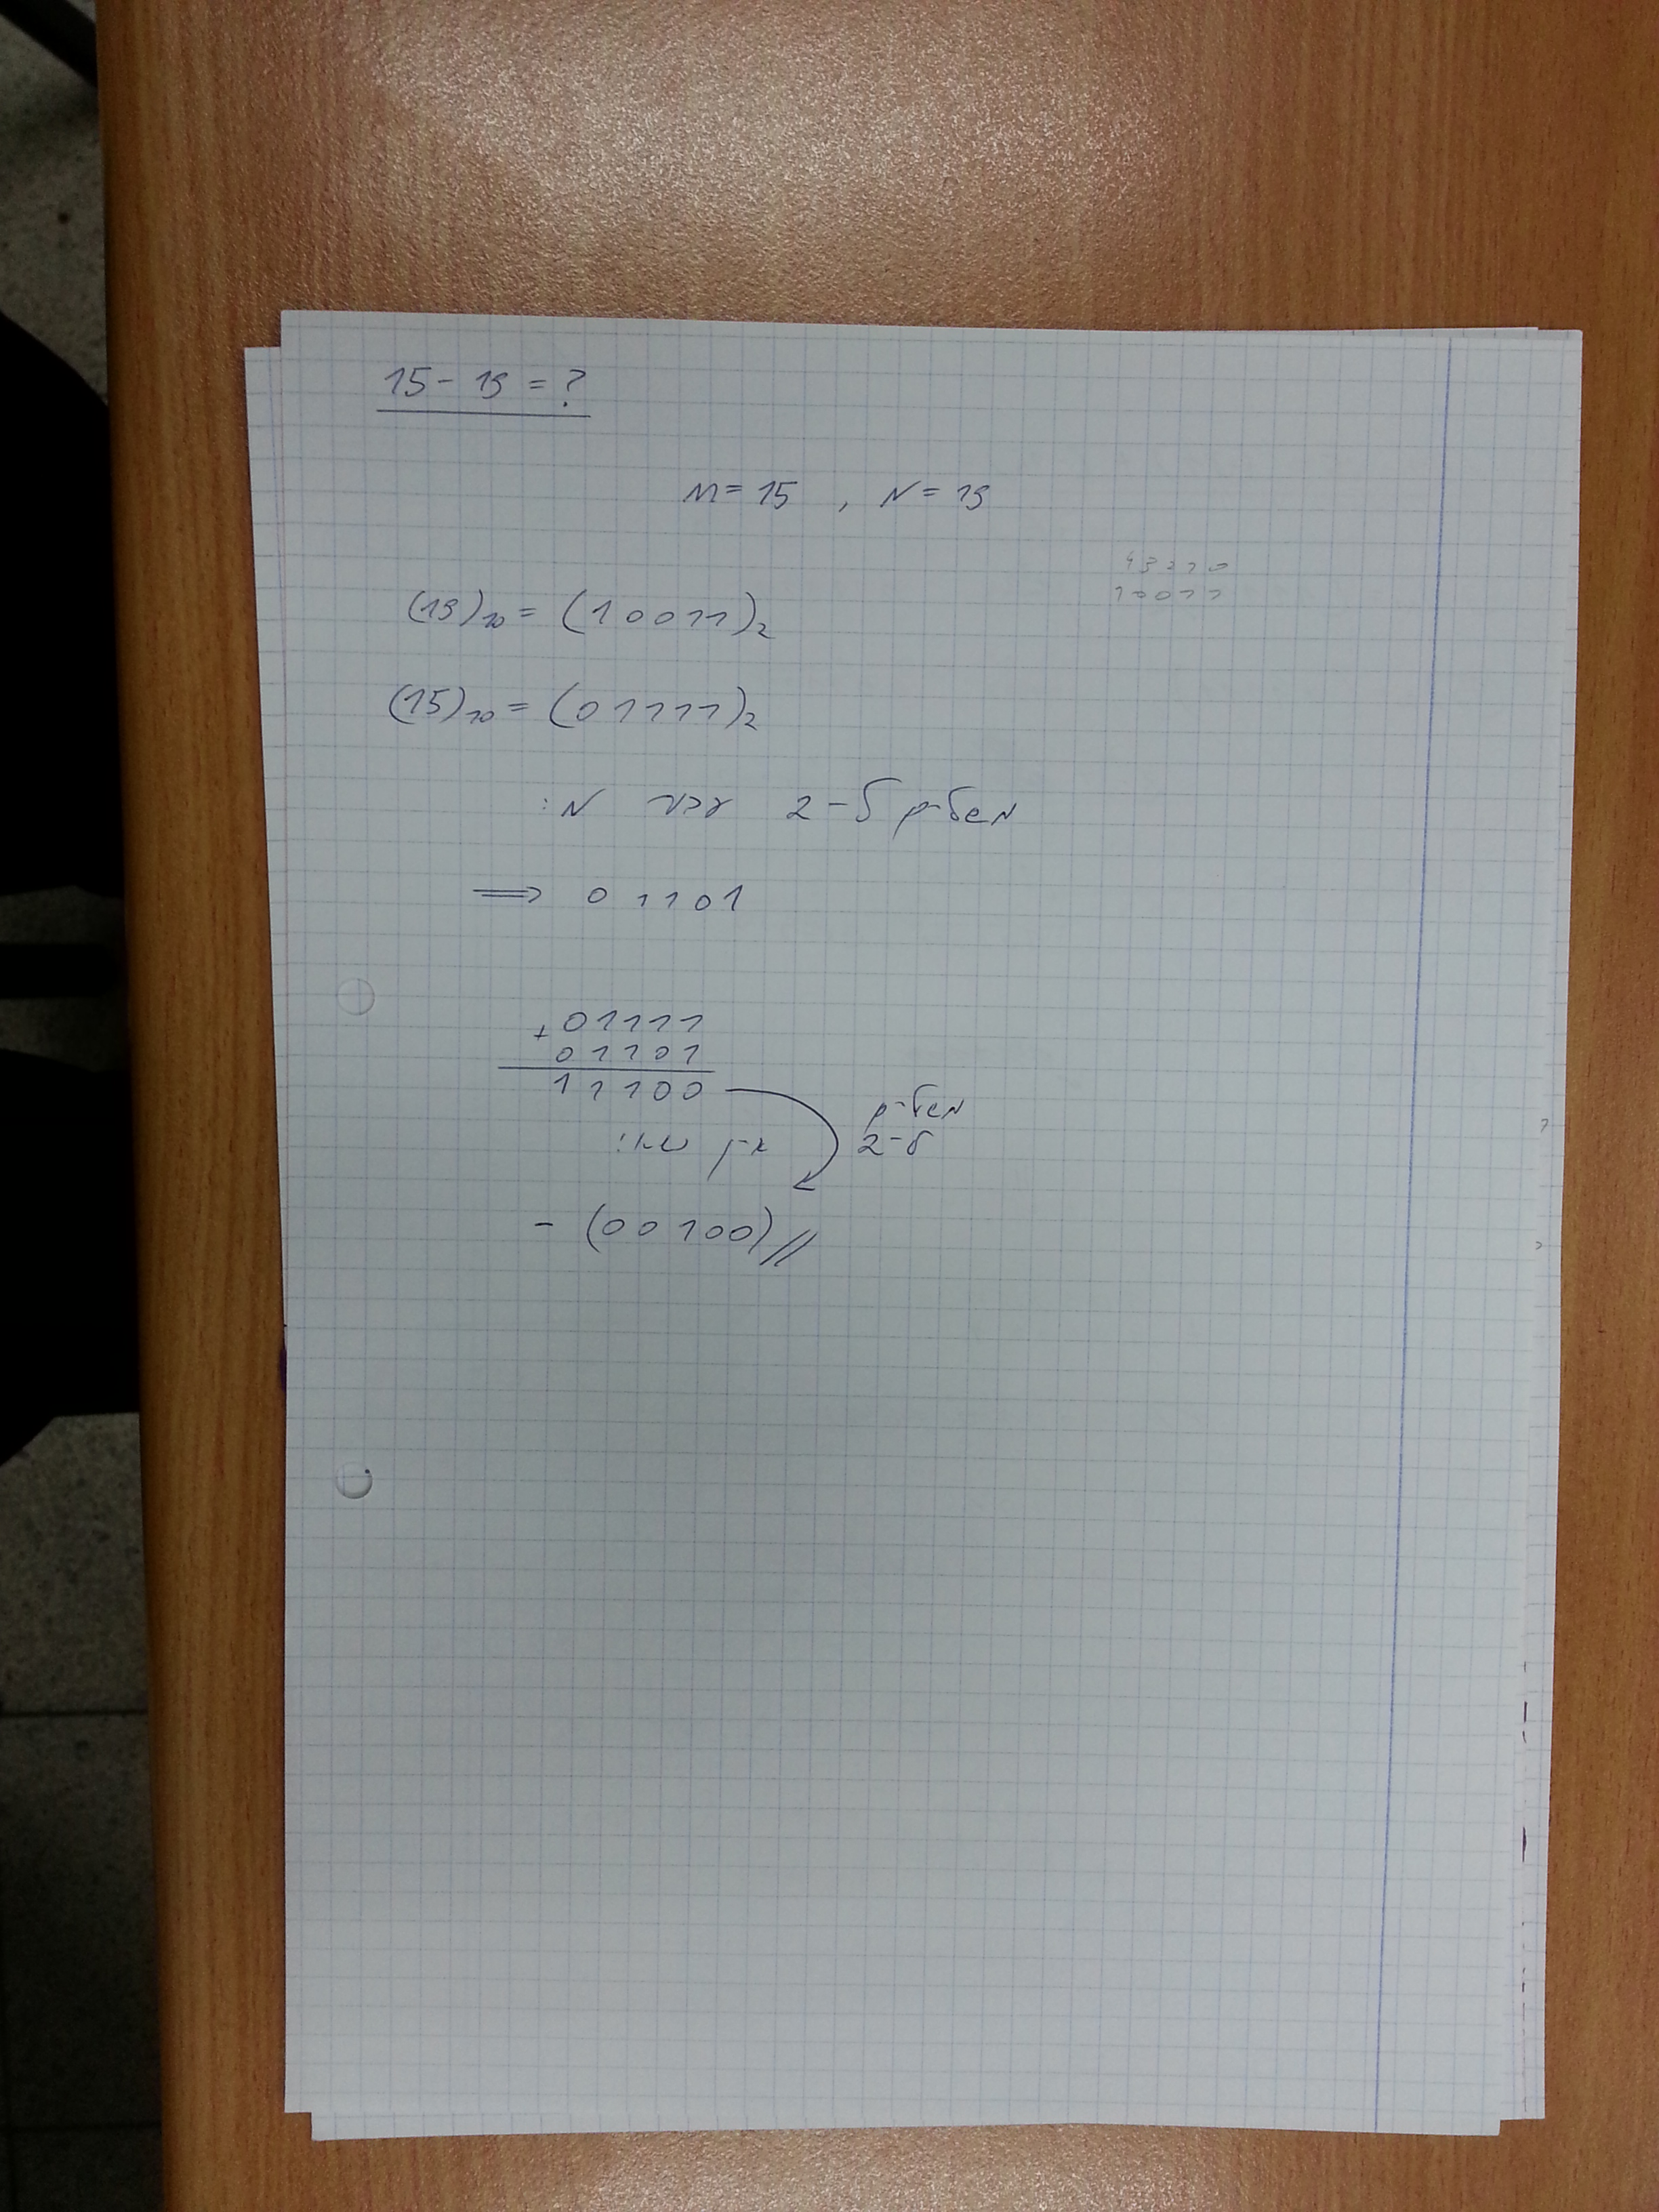 15 - 19 = ?
M = 15 , N = 19
4 3 2 1 0
1 0 0 1 1
(19)₁₀ = (1 0 0 1 1)₂
(15)₁₀ = (0 1 1 1 1)₂
משלים ל-2 עבור N:
⟹ 0 1 1 0 1
+ 0 1 1 1 1
0 1 1 0 1
1 1 1 0 0
משלים
ל-2
אין
- (0 0 1 0 0) //